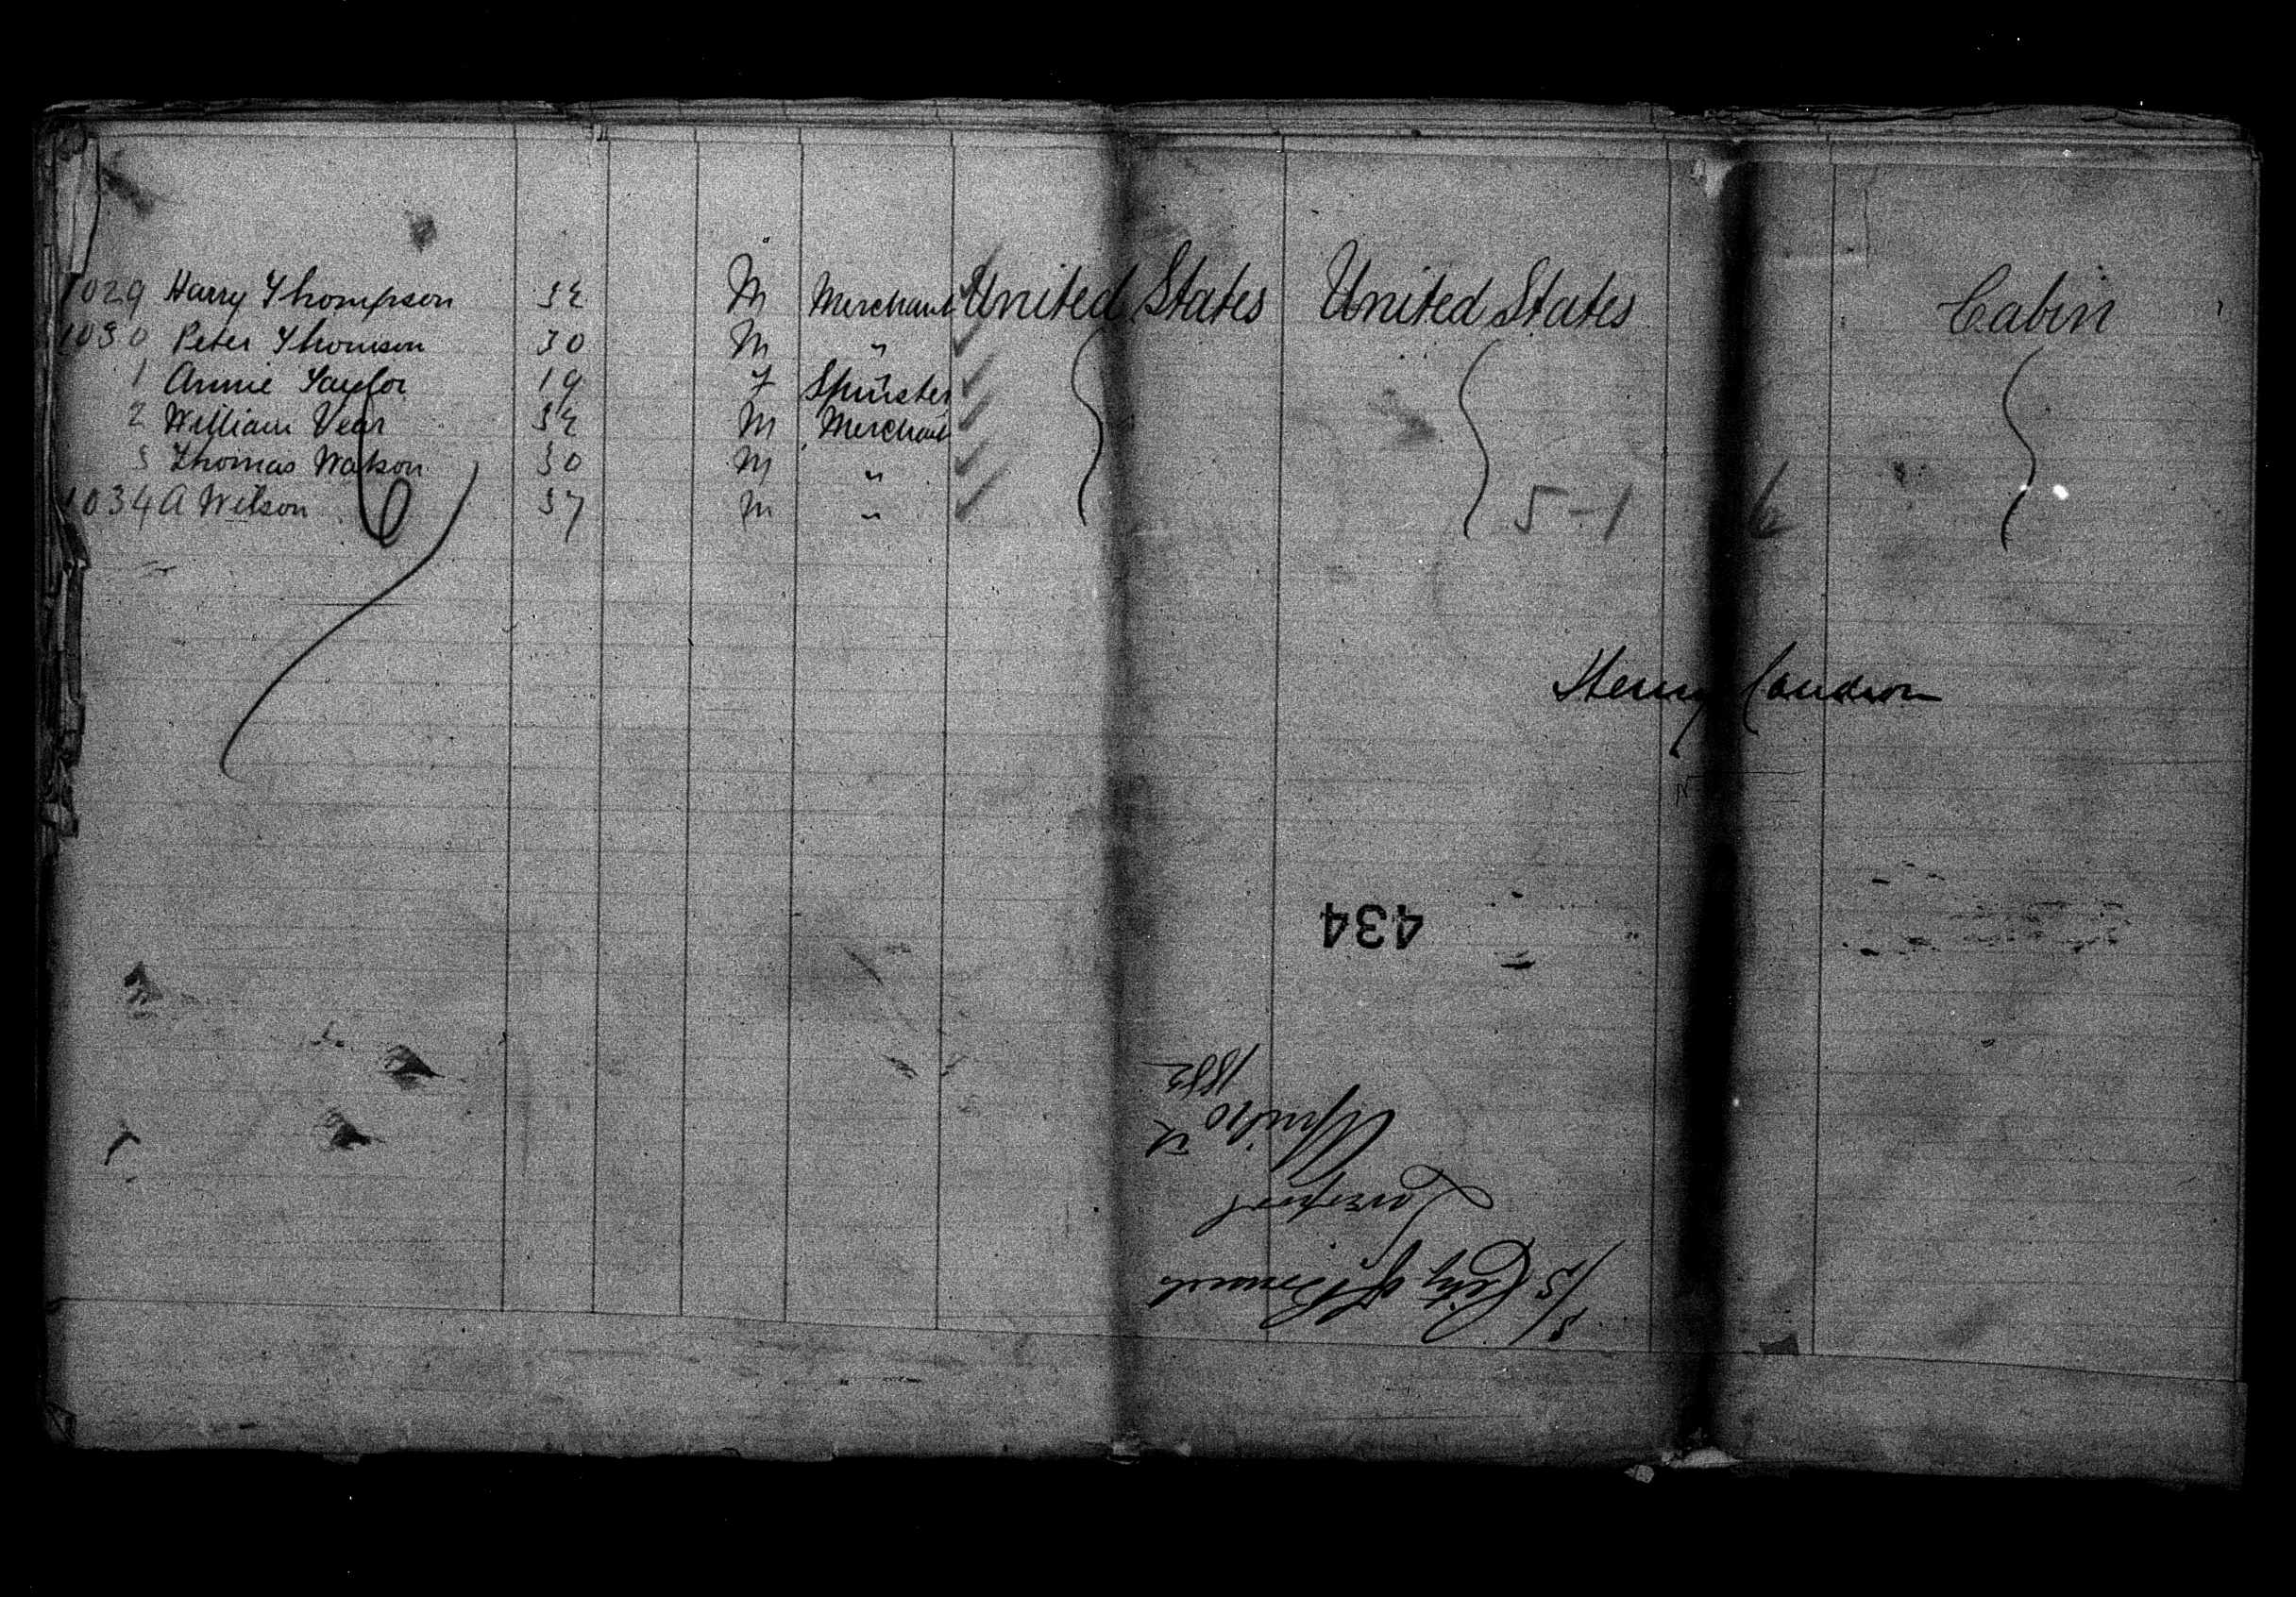 1029 Harry Thompson 32 M Merchant United States United States Cabin
1030 Peter Thomson 30 M "
1 Annie Taylor 19 F Spinster
2 William Vear 32 M Merchant
3 Thomas Watson 30 M "
1034 A Wilson 37 M "
5-1 6
Henry
434
S/S City of
Liverpool
April 10
1882